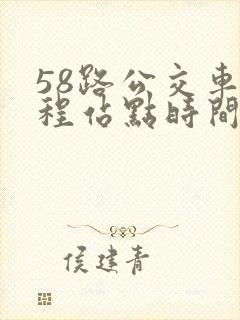 58路公交車
程佔點時間
侯建青